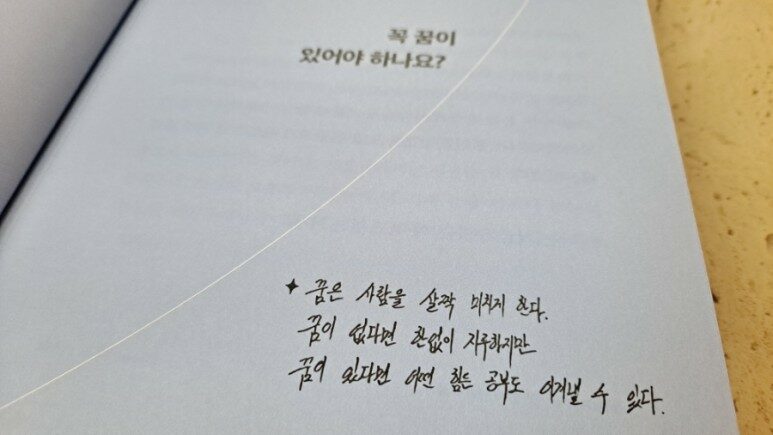 꼭 꿈이
있어야 하나요?
✦ 꿈은 사람을 살짝 미치게 한다.
꿈이 없다면 한없이 지루하지만
꿈이 있다면 어떤 힘든 공부도 이겨낼 수 있다.